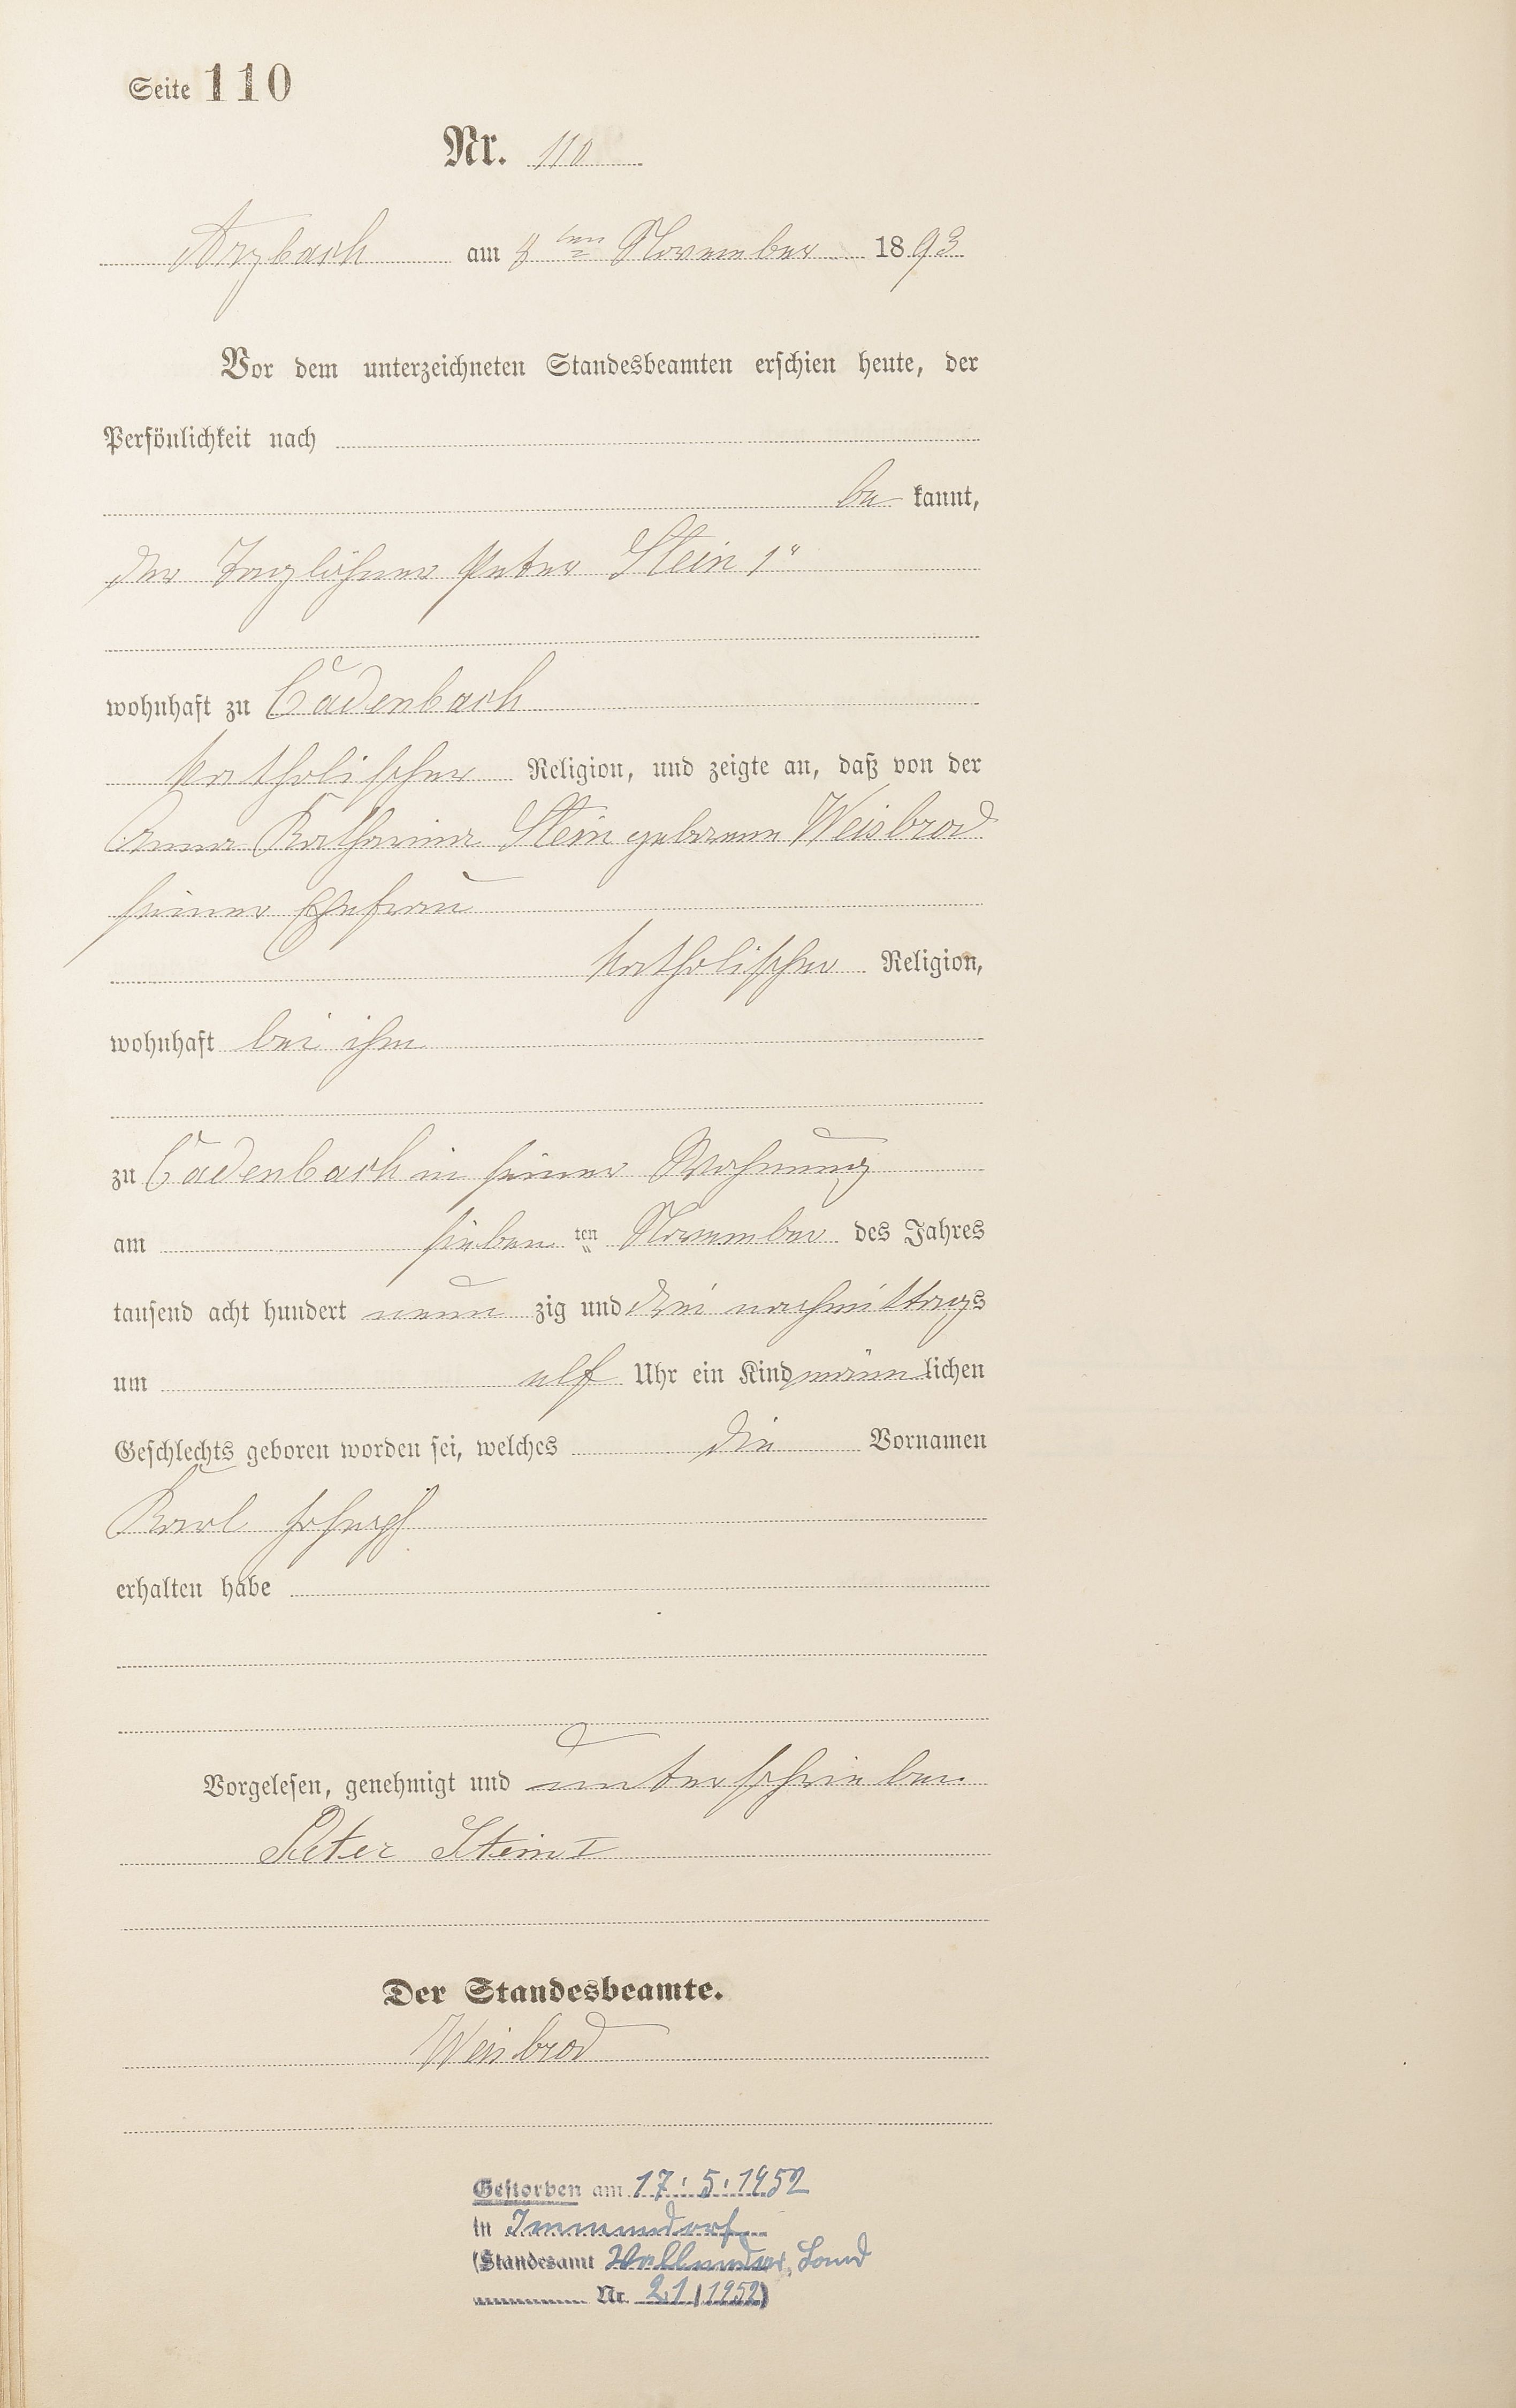 Seite 110
Nr. 110
Arzbach am 8ten November 1893
Vor dem unterzeichneten Standesbeamten erschien heute, der
Persönlichkeit nach
be kannt,
der Taglöhner Peter Stein 1"
wohnhaft zu Cadenbach
katholischer Religion, und zeigte an, daß von der
Anna Katharina Stein geborenen Weisbrod
seiner Ehefrau
katholischer Religion,
wohnhaft bei ihm
zu Cadenbach in seiner Wohnung
am sieben ten November des Jahres
tausend acht hundert neun zig und drei nachmittags
um elf Uhr ein Kind männ lichen
Geschlechts geboren worden sei, welches die Vornamen
Karl Joseph
erhalten habe
Vorgelesen, genehmigt und unterschrieben
Peter Stein I
Der Standesbeamte.
Weisbrod
Gestorben am 17.5.1952
in Immendorf
(Standesamt Vallendar, Land
Nr. 21/1952)